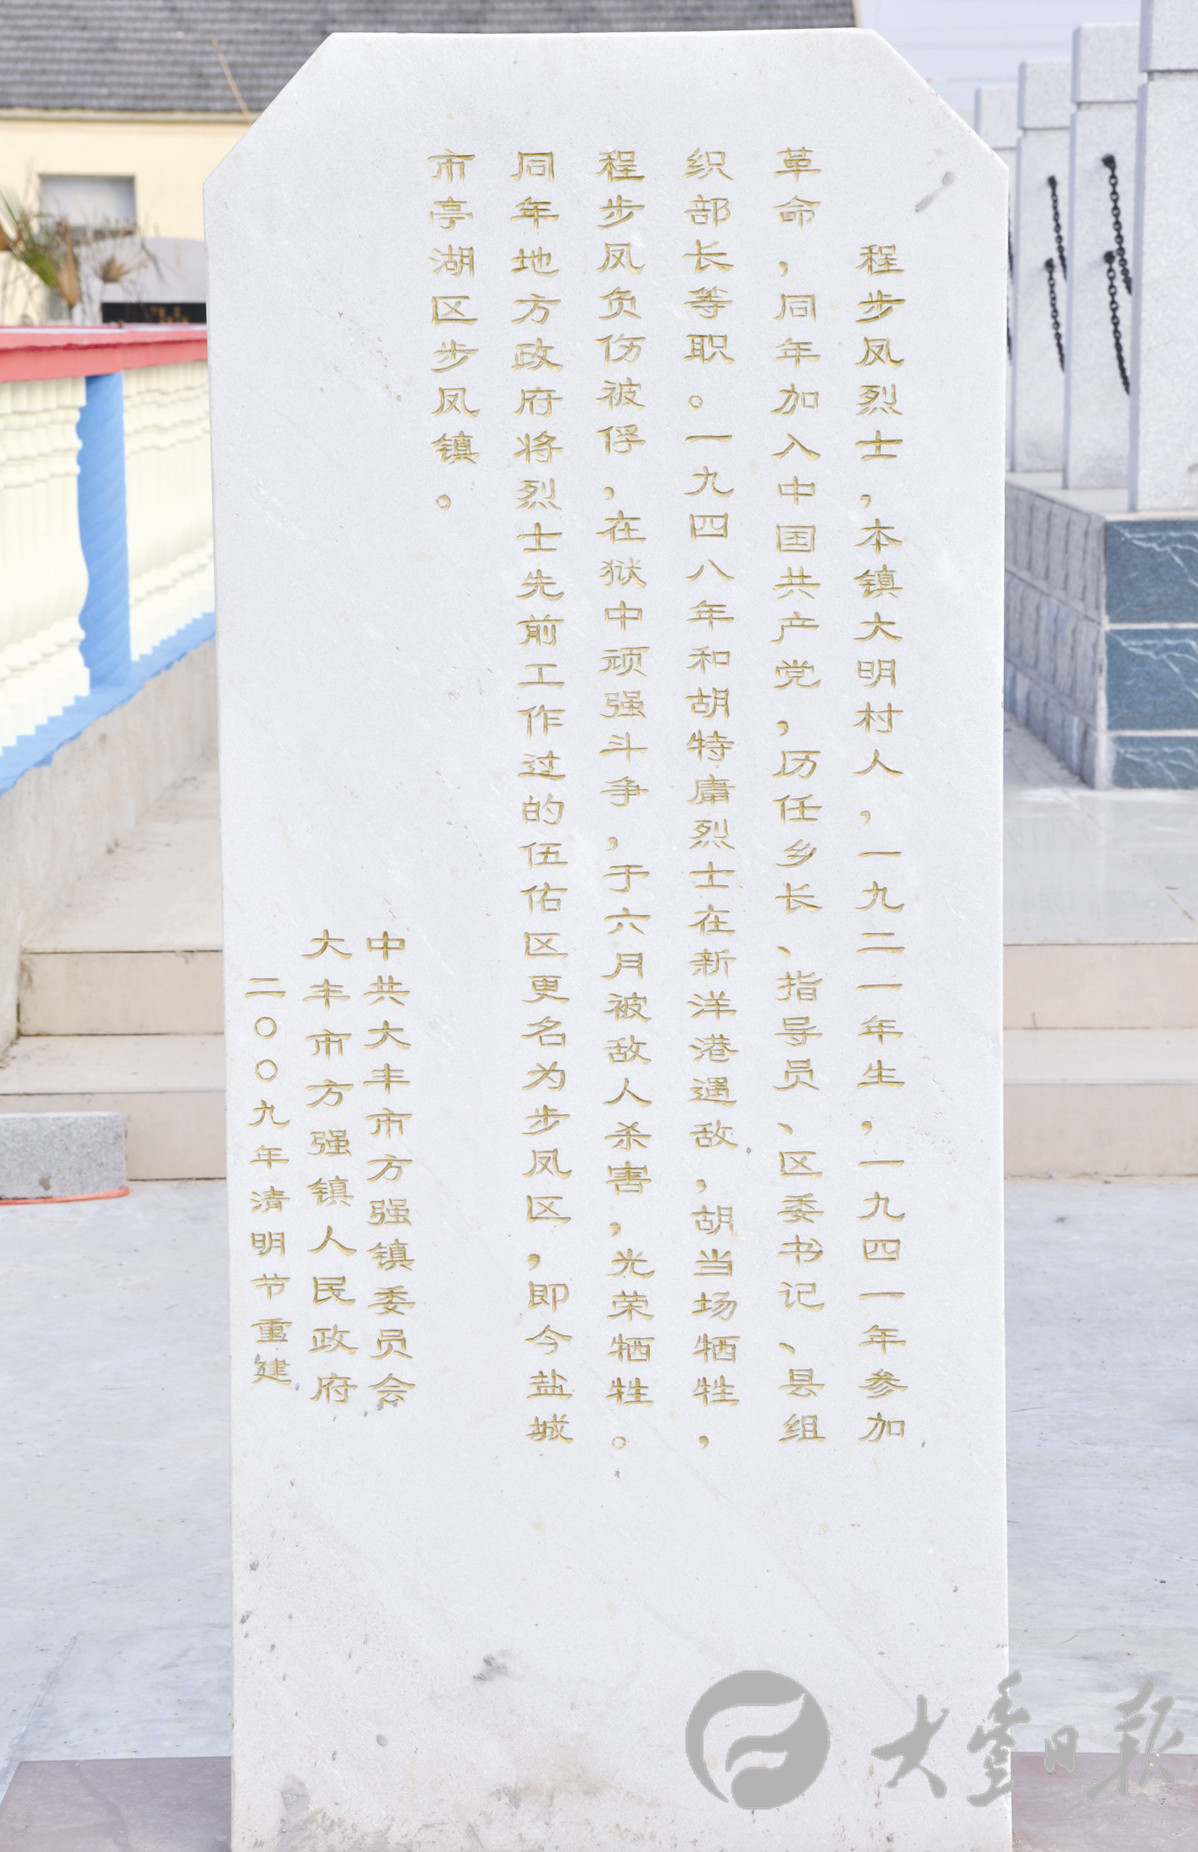 程步凤烈士,本镇大明村人,一九二一年生,一九四一年参加
革命,同年加入中国共产党,历任乡长、指导员、区委书记、县组
织部长等职。一九四八年和胡特庸烈士在新洋港遇敌,胡当场牺牲,
程步凤负伤被俘,在狱中顽强斗争,于六月被敌人杀害,光荣牺牲。
同年地方政府将烈士先前工作过的伍佑区更名为步凤区,即今盐城
市亭湖区步凤镇。
中共大丰市方强镇委员会
大丰市方强镇人民政府
二〇〇九年清明节重建
大丰日报